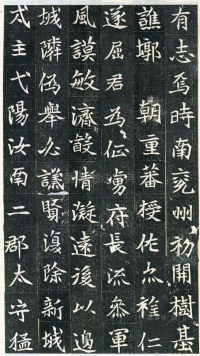 有志焉時南兗州初開樹基
譙墎 朝重蕃授佐亦雅仁
遂屈君為征虜府長流參軍
風謨敏濟毅情凝遠後以邊
城隣偽舉必議賢復除新城
戍主弋陽汝南二郡太守猛